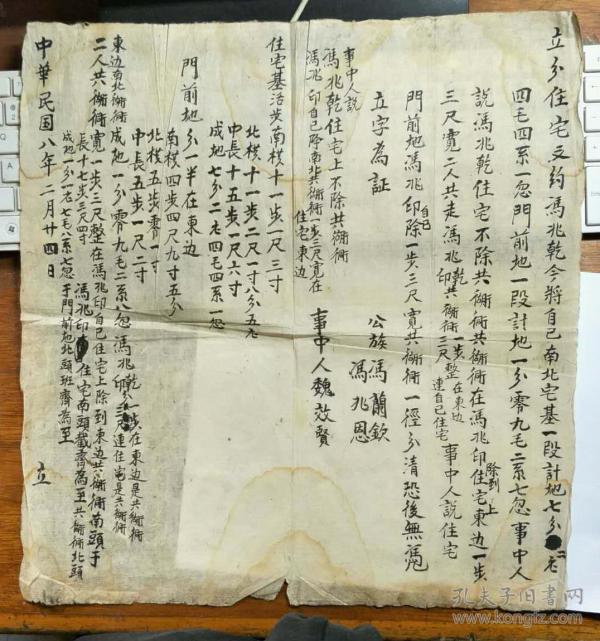 立分住宅文约馮兆乾今將自己南北宅基一段計地七分二厷
四毛四系一忽門前地一段計地一分零九毛二系七忽事中人
說馮兆乾住宅不除共衚衕共衚衕在馮兆印住宅東边一步
除到上
三尺寬二人共走馮兆乾印共衚衕一步三尺整在東边連自己住宅事中人說住宅
門前地馮兆印自己除一步三尺寬共衚衕一徑分清恐後無馮
立字為証
公族馮蘭欽
馮兆恩
事中人魏效賢
事中人說
馮兆乾住宅上不除共衚衕
馮兆印自己除南北共衚衕一步三尺寬在
住宅東边
住宅基活步南横十一步一尺三寸
北横十一步二尺一寸八分五厷
中長十五步一尺六寸
成地七分二厷四毛四系一忽
門前地分一半在東边
南横四步四尺九寸五分
北横五步零一寸
中長五步一尺二寸
成地一分零九毛二系八忽
馮兆乾印分一步三尺在東边是共衚衕連住宅是共衚衕
東边南北衚衕
二人共衚衕寬一步三尺整在馮兆印自己住宅上除到東边共衚衕南頭于
長十七步三尺四寸
馮兆印住宅南頭截齊為至共衚衕北頭
成地一分一厷七毛六系七忽
于門前地北頭班齊為至
中華民国八年二月廿四日
立
孔夫子旧書网
www.kongfz.com